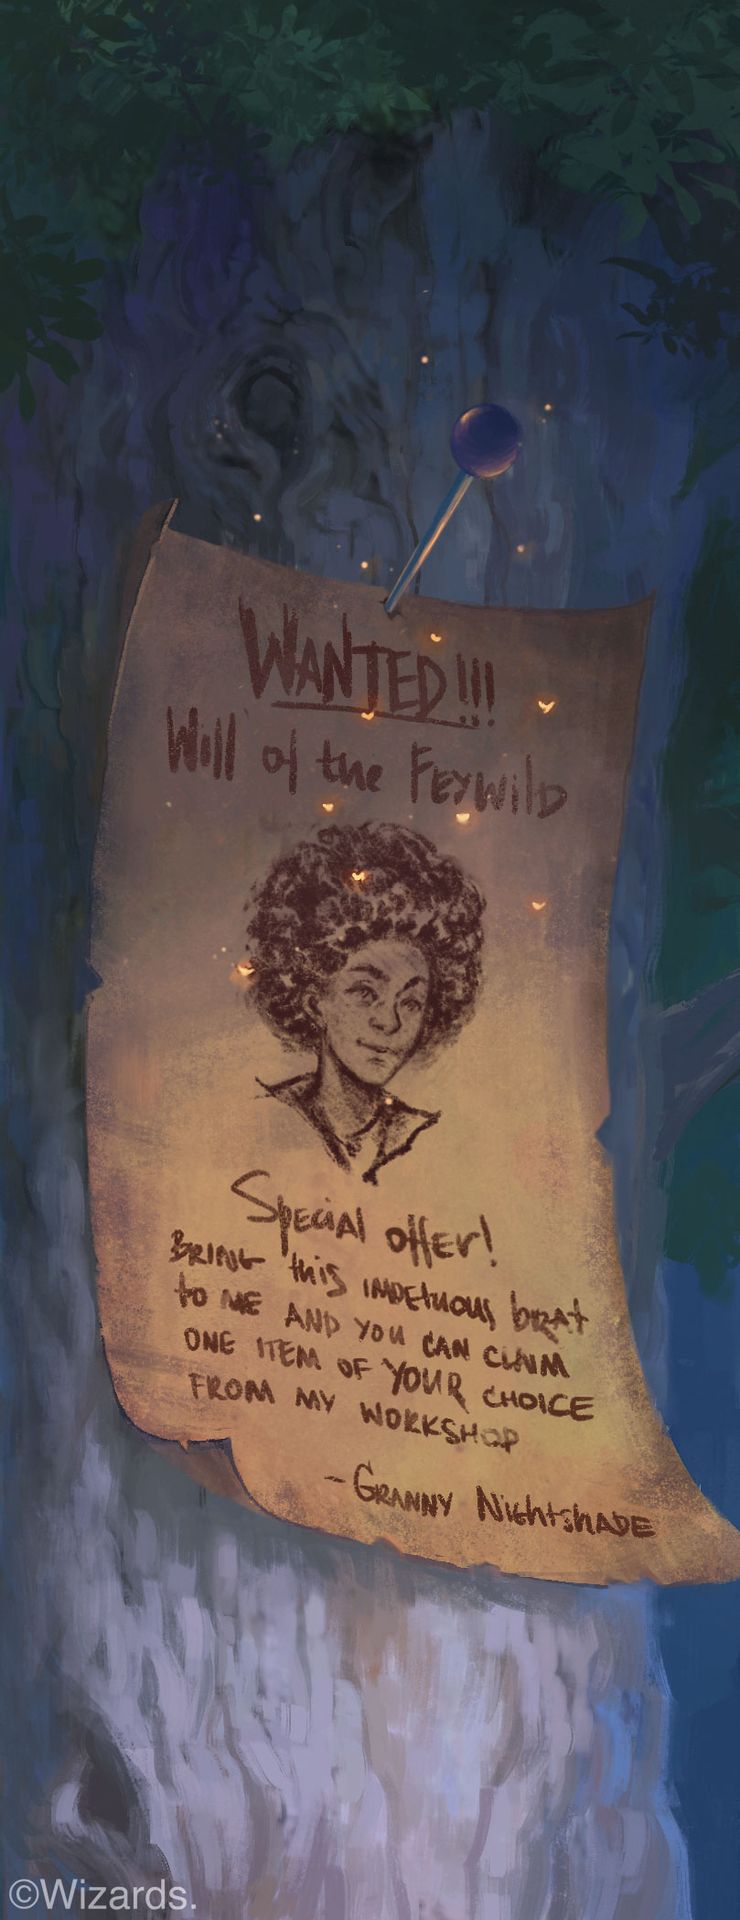 WANTED!!!
Will of the FEYWilD
Special offer!
BRING this IMPETUOUS brat
to ME AND YOU CAN CLAIM
ONE ITEM OF YOUR CHOICE
FROM MY WORKSHOP
-GRANNY NIGhtshADE
©Wizards.